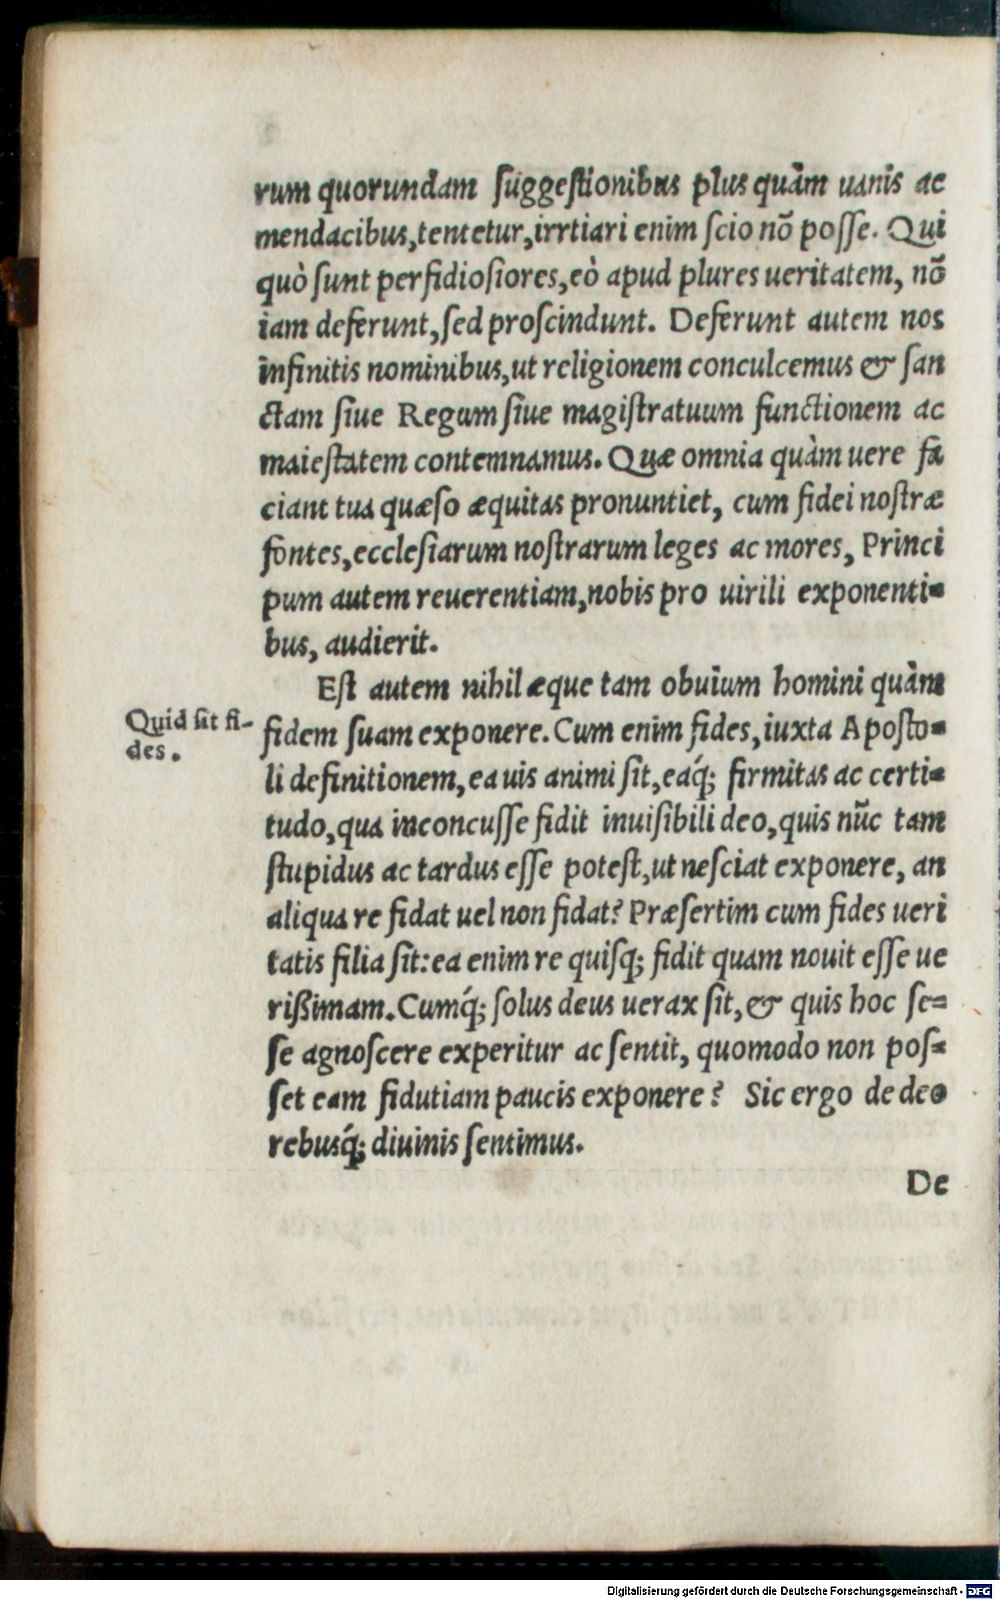 rum quorundam suggestionibus plus quàm uanis ac
mendacibus, tentetur, irrtiari enim scio nõ posse. Qui
quò sunt perfidiosiores, eò apud plures ueritatem, nõ
iam deferunt, sed proscindunt. Deferunt autem nos
infinitis nominibus, ut religionem conculcemus & san
ctam siue Regum siue magistratuum functionem ac
maiestatem contemnamus. Quæ omnia quàm uere fa
ciant tua quæso æquitas pronuntiet, cum fidei nostræ
fontes, ecclesiarum nostrarum leges ac mores, Princi
pum autem reuerentiam, nobis pro uirili exponenti-
bus, audierit.
Est autem nihil æque tam obuium homini quàm
Quid sit fi-
des.
fidem suam exponere. Cum enim fides, iuxta Aposto-
li definitionem, ea uis animi sit, eaq́; firmitas ac certi-
tudo, qua inconcusse fidit inuisibili deo, quis nũc tam
stupidus ac tardus esse potest, ut nesciat exponere, an
aliqua re fidat uel non fidat? Præsertim cum fides ueri
tatis filia sit: ea enim re quisq; fidit quam nouit esse ue
rißimam. Cumq́; solus deus uerax sit, & quis hoc se=
se agnoscere experitur ac sentit, quomodo non pos-
set eam fidutiam paucis exponere? Sic ergo de deo
rebusq́; diuinis sentimus.
De
Digitalisierung gefördert durch die Deutsche Forschungsgemeinschaft - DFG